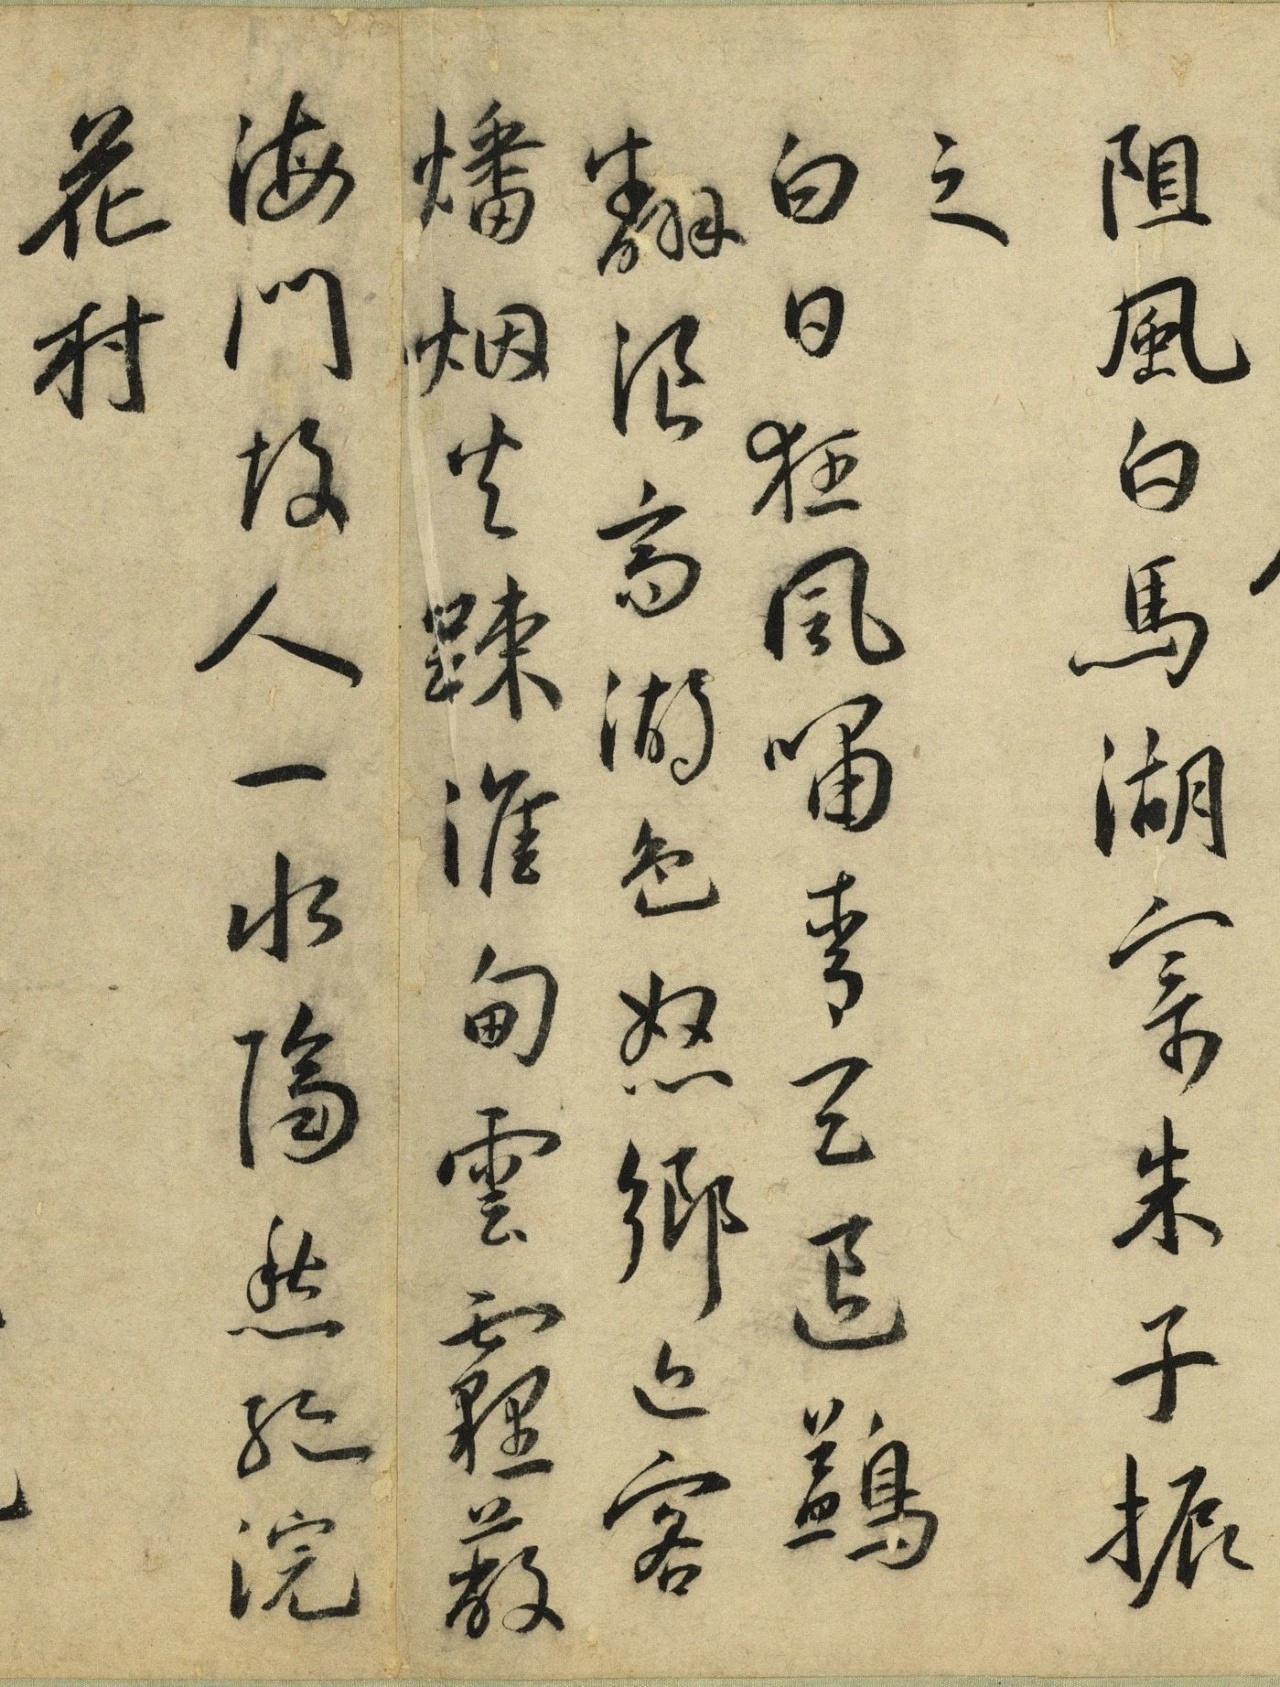 阻風白馬湖寄朱子振
之
白日狂風嘯青天退鷁
翻浪高湖色怒鄉近客
燔烟火踈淮甸雲霾蔽
海門故人一水隔愁絕浣
花村